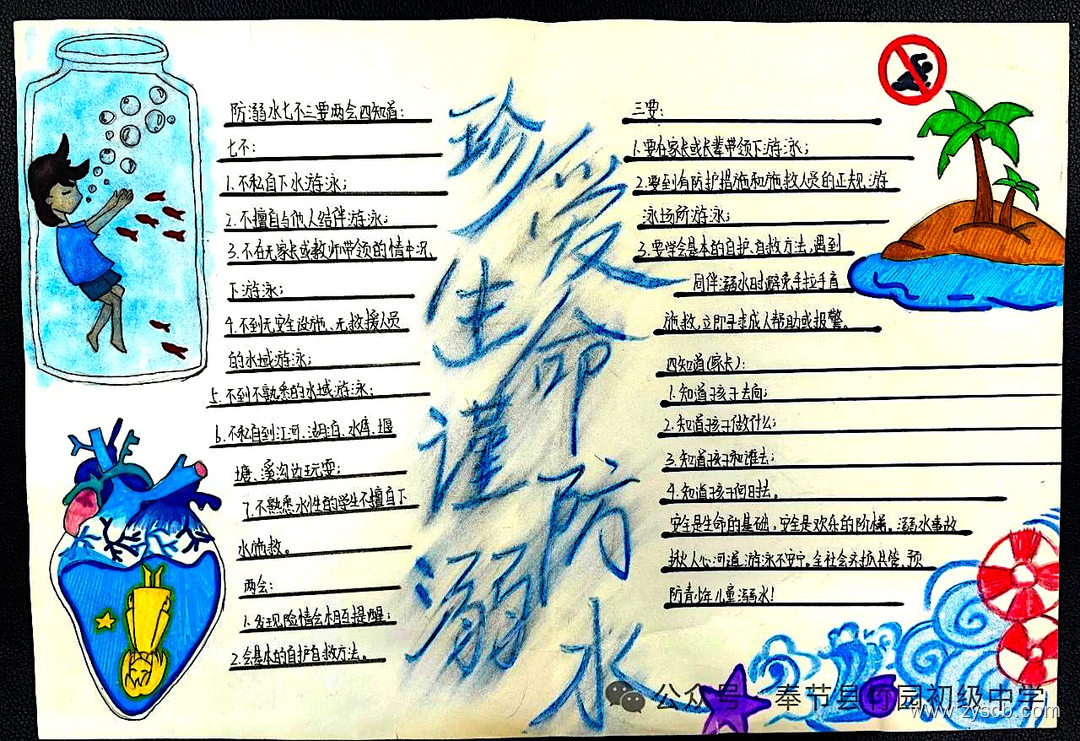 防溺水七不三要两会四知道:
七不:
1.不私自下水游泳;
2.不擅自与他人结伴游泳;
3.不在无家长或教师带领的情中况
下游泳;
4.不到无安全设施、无救援人员
的水域游泳;
5.不到不熟悉的水域游泳;
6.不私自到江河、湖泊、水库、堰
塘、溪沟边玩耍;
7.不熟悉水性的学生不擅自下
水施救。
两会:
1.发现险情会相互提醒;
2.会基本的自护自救方法。
珍爱生命
谨防溺水
三要:
1.要在家长或长辈带领下游泳;
2.要到有防护措施和施救人员的正规游
泳场所游泳;
3.要学会基本的自护、自救方法,遇到
同伴溺水时避免手拉手盲
施救,立即寻求成人帮助或报警。
四知道(家长):
1.知道孩子去向;
2.知道孩子做什么;
3.知道孩子和谁去;
4.知道孩子何时去。
安全是生命的基础,安全是欢乐的阶梯。溺水事故
揪人心河道游泳不安宁。全社会齐抓共管、预
防青少年儿童溺水!
公众号·奉节县竹园初级中学
www.zyscb.com